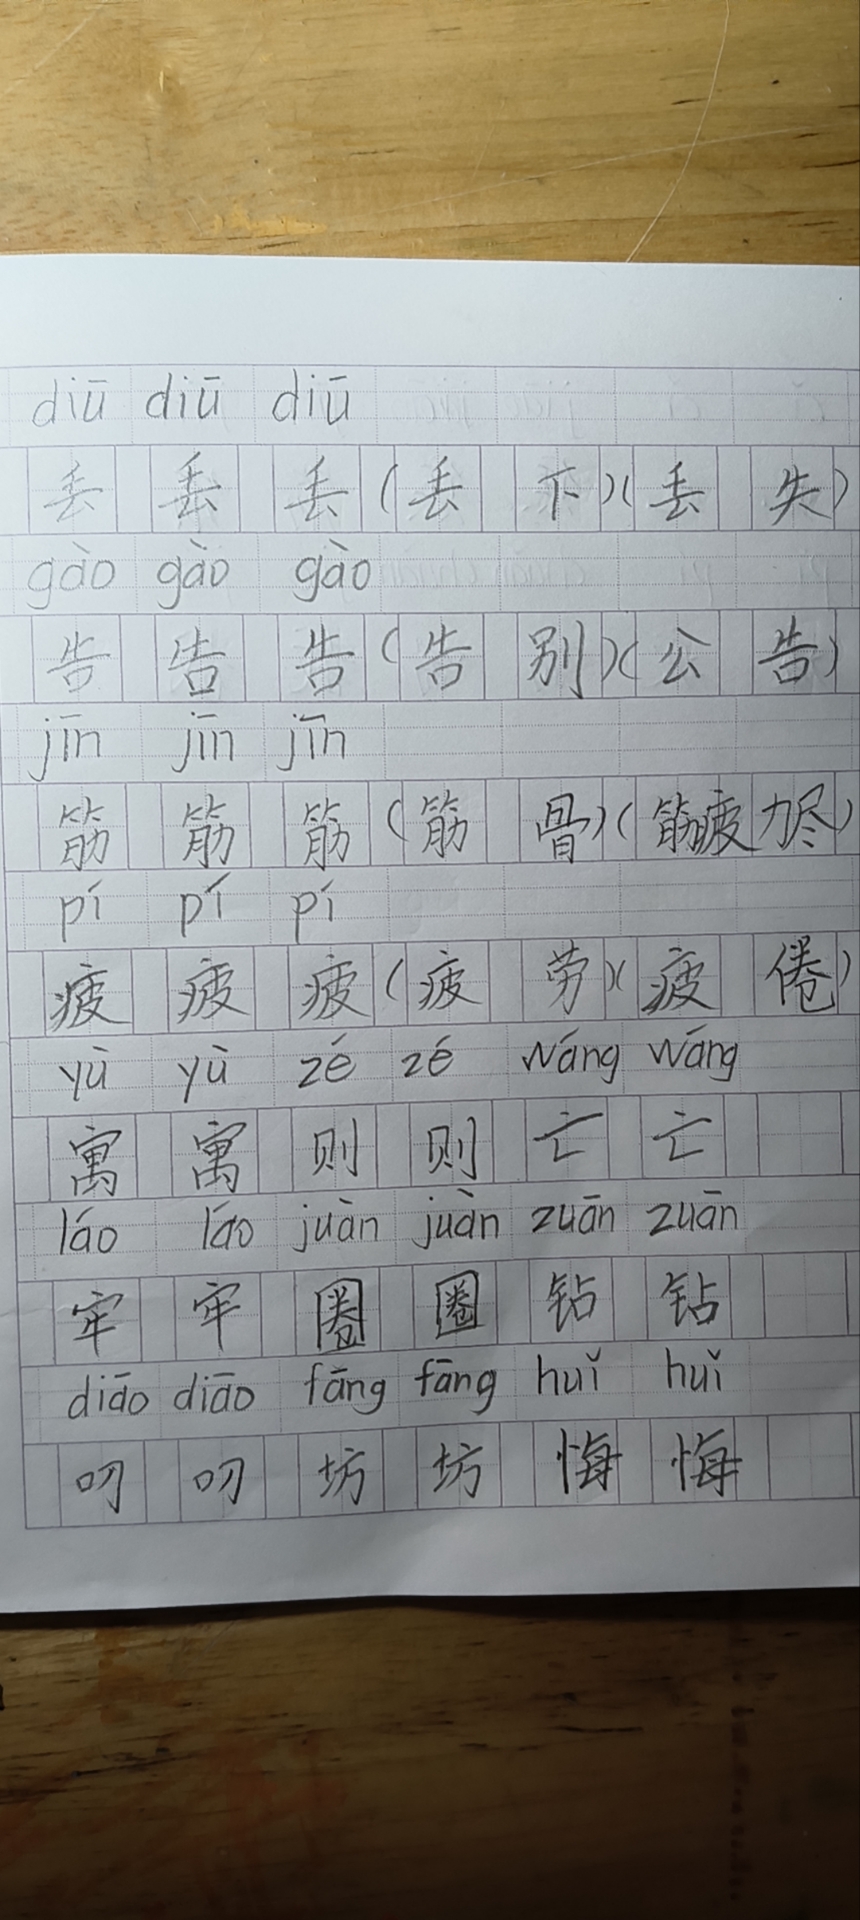 diū diū diū
丢 丢 丢(丢 下)(丢 失)
gào gào gào
告 告 告(告 别)(公 告)
jīn jīn jīn
筋 筋 筋(筋 骨)(筋疲力尽)
pí pí pí
疲 疲 疲(疲 劳)(疲 倦)
yù yù zé zé wáng wáng
寓 寓 则 则 亡 亡
láo láo juàn juàn zuān zuān
牢 牢 圈 圈 钻 钻
diāo diāo fāng fāng huǐ huǐ
叼 叼 坊 坊 悔 悔